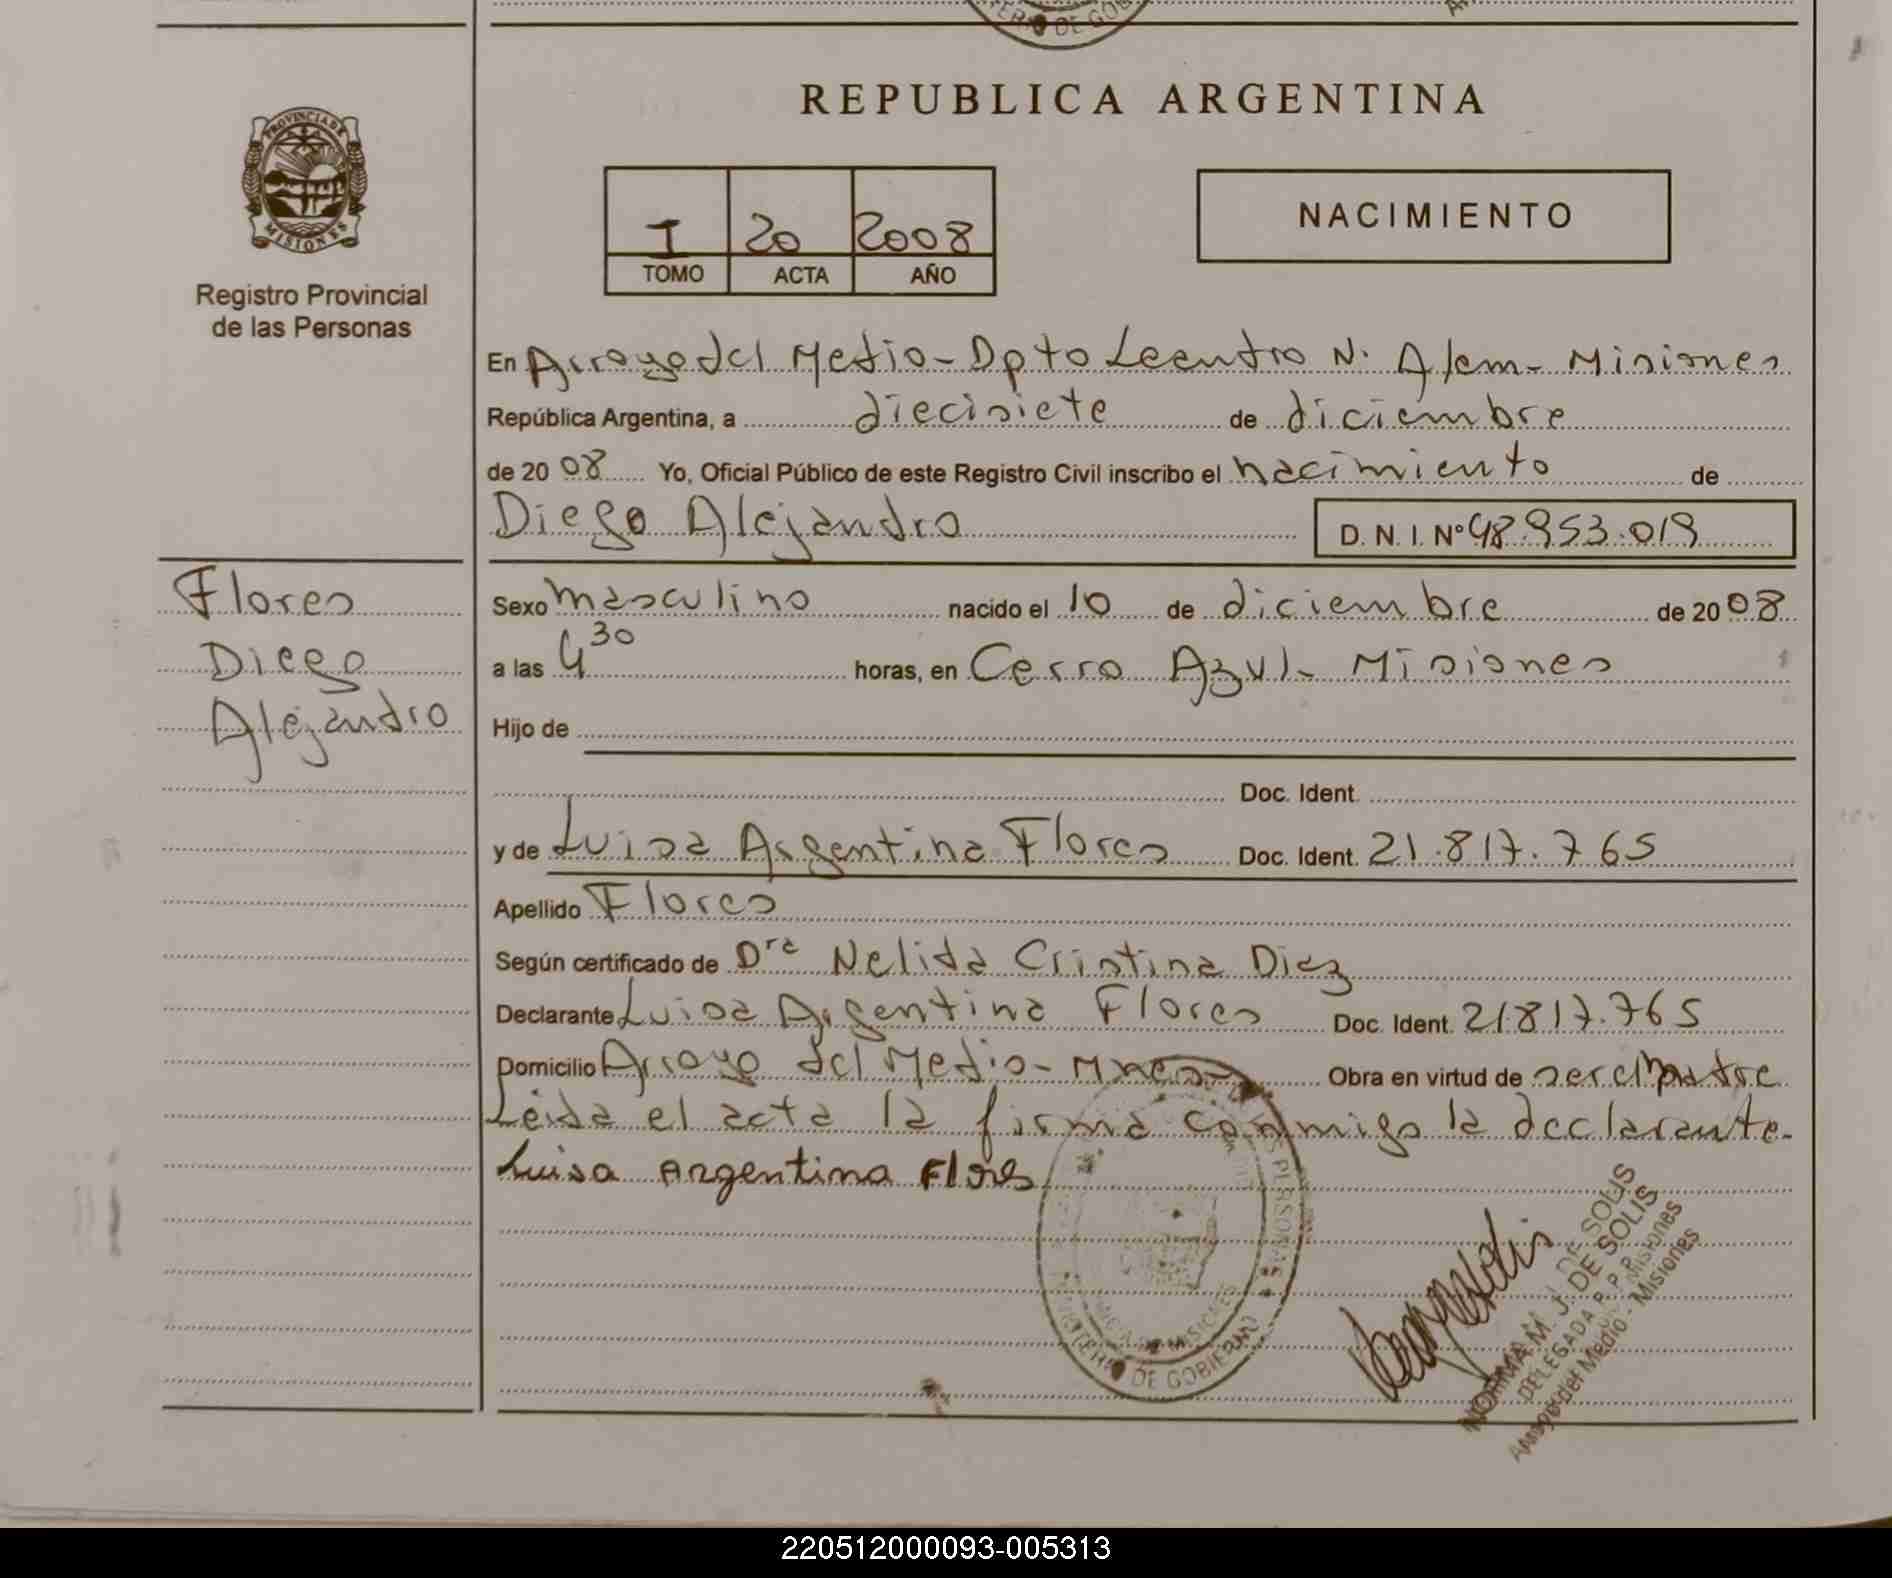 REPUBLICA ARGENTINA
PROVINCIA DE
MISIONES
Registro Provincial
de las Personas
I 20 2008
TOMO ACTA AÑO
NACIMIENTO
En Arroyo del Medio - Dpto Leandro N. Alem - Misiones
República Argentina, a diecisiete de diciembre
de 2008 Yo, Oficial Público de este Registro Civil inscribo el nacimiento de
Diego Alejandro D. N. I. Nº 48.953.019
Flores
Diego
Alejandro
Sexo masculino nacido el 10 de diciembre de 2008
a las 4 30 horas, en Cerro Azul - Misiones
Hijo de
Doc. Ident.
y de Luisa Argentina Flores Doc. Ident. 21.817.765
Apellido Flores
Según certificado de Dra Nelida Cristina Diez
Declarante Luisa Argentina Flores Doc. Ident. 21817.765
Domicilio Arroyo del Medio - Mnes - Obra en virtud de ser
Leida el acta la firma conmigo la declarante.
Luisa Argentina Flores
DE LAS PERSONAS
MINISTERIO DE GOBIERNO
NORMA M. J. DE SOLIS
DELEGADA R. P. P.
Arroyo del Medio - Misiones
220512000093-005313